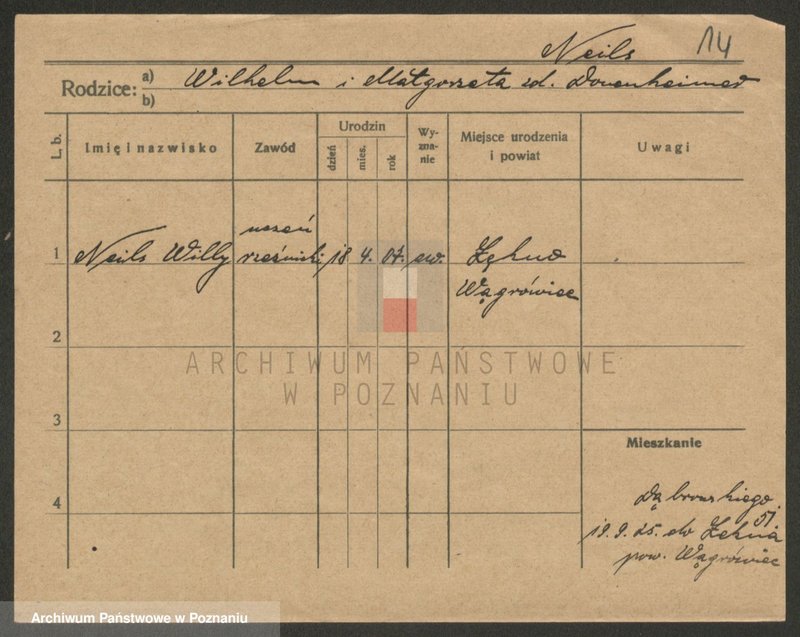 14
Neils
Rodzice: a) Wilhelm i Małgorzata zd.
b)
L. b. Imię i nazwisko Zawód Urodzin dzień mies. rok Wyznanie Miejsce urodzenia i powiat Uwagi
uczeń
1 Neils Willy rzeźnicki 18 4. 07. ew. Łękno
Wągrówiec
2
ARCHIWUM PAŃSTWOWE
W POZNANIU
3
Mieszkanie
4
Dąbrowskiego
51.
19.9.25. do Łekna
pow. Wągrówiec
Archiwum Państwowe w Poznaniu